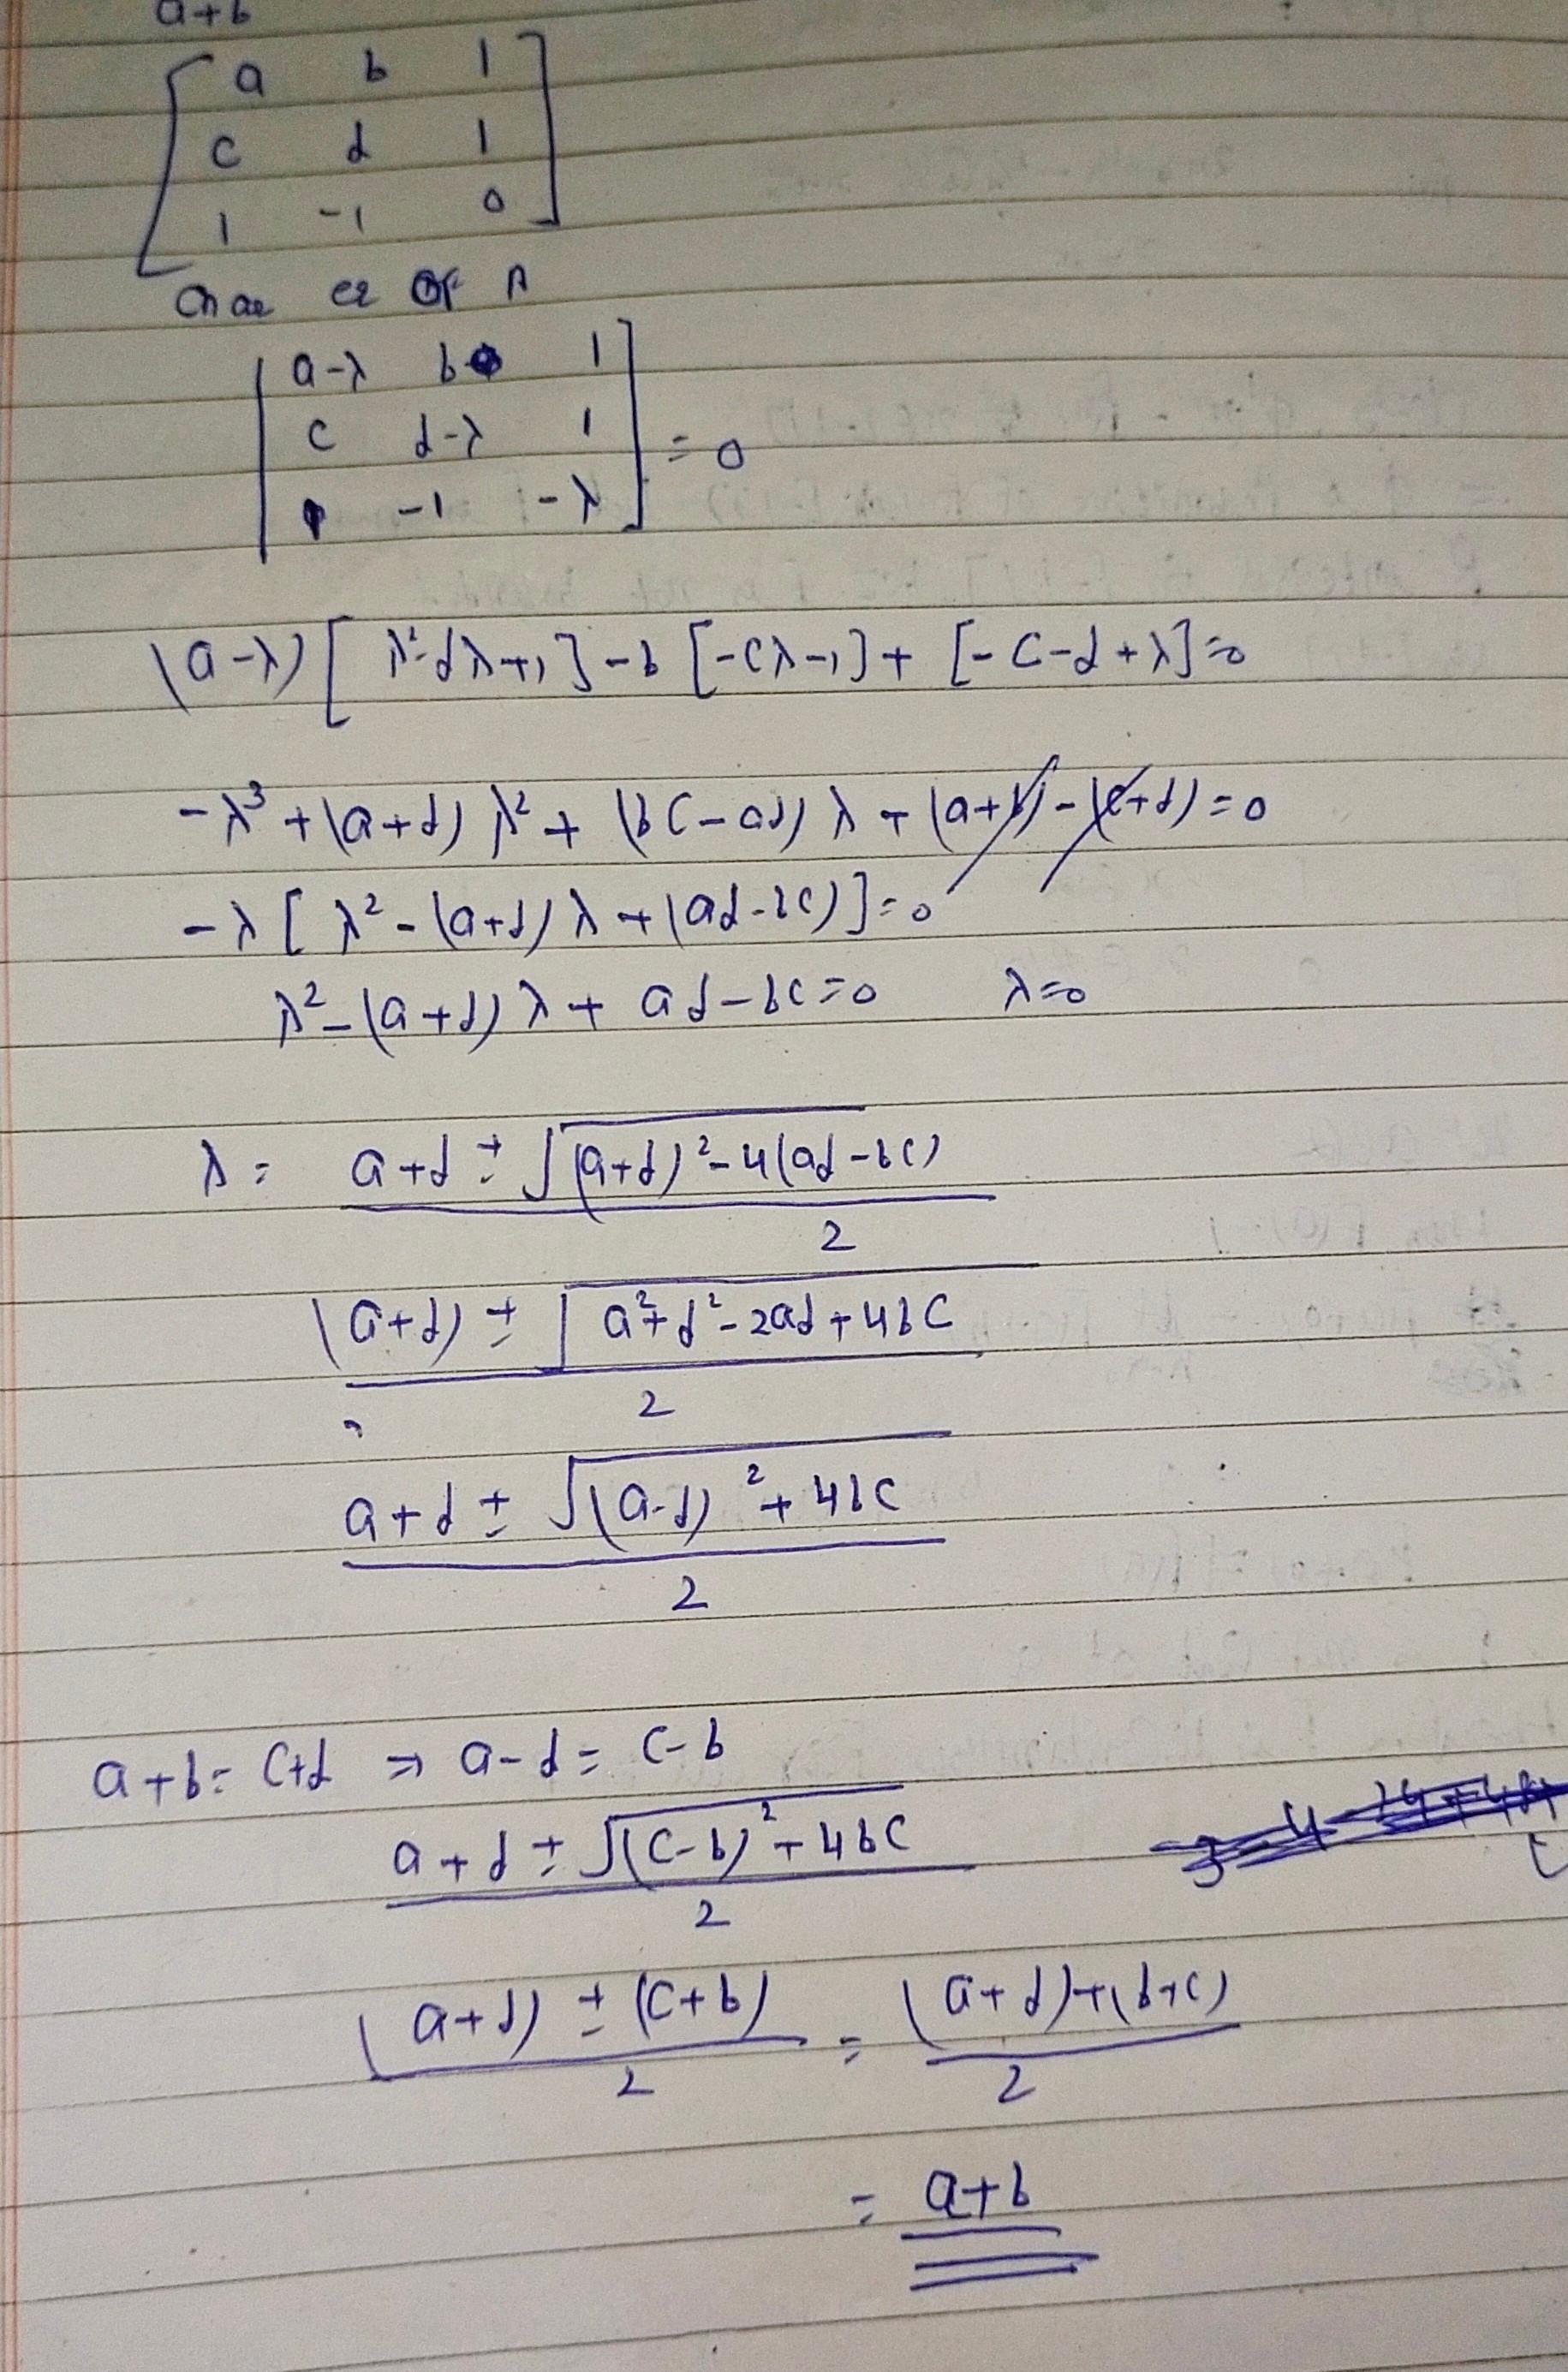 a+b
[ a b 1
c d 1
1 -1 0 ]
Of A
| a-λ b 1
c d-λ 1
1 -1 -λ | = 0
(a-λ) [ λ²-dλ+1 ] -b [-cλ-1] + [-c-d+λ]=0
-λ³ + (a+d) λ² + (bc-ad) λ + (a+b) - (c+d) = 0
-λ [ λ² - (a+d) λ + (ad-bc) ] = 0
λ² - (a+d) λ + ad-bc = 0 λ=0
λ = a+d ± √(a+d)²-4(ad-bc)
2
(a+d) ± √a²+d²-2ad+4bc
2
a+d ± √(a-d)²+4bc
2
a+b = c+d ⇒ a-d = c-b
a+d ± √(c-b)²+4bc
2
(a+d) ± (c+b) = (a+d)+(b+c)
2 2
= a+b